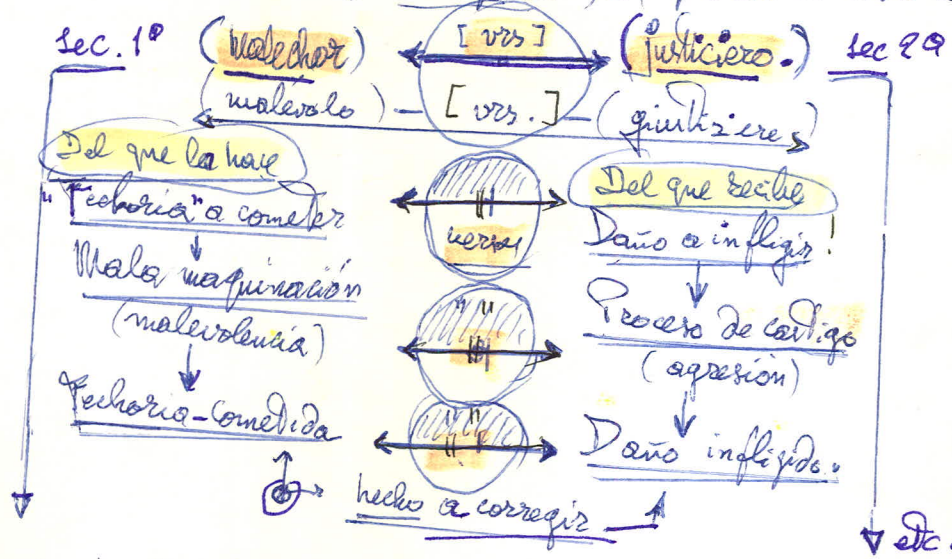 sec. 1ª (Malechor) [vrs] (justiciero.) sec 2ª
(malévolo) - [vrs.] - (giustiziere)
Del que la hace Del que recibe
"Fechoria" a cometer versus Daño a infligir!
Mala maquinación Proceso de castigo
(malevolencia) (agresión)
Fechoria-Cometida Daño infligido..
hecho a corregir
etc.